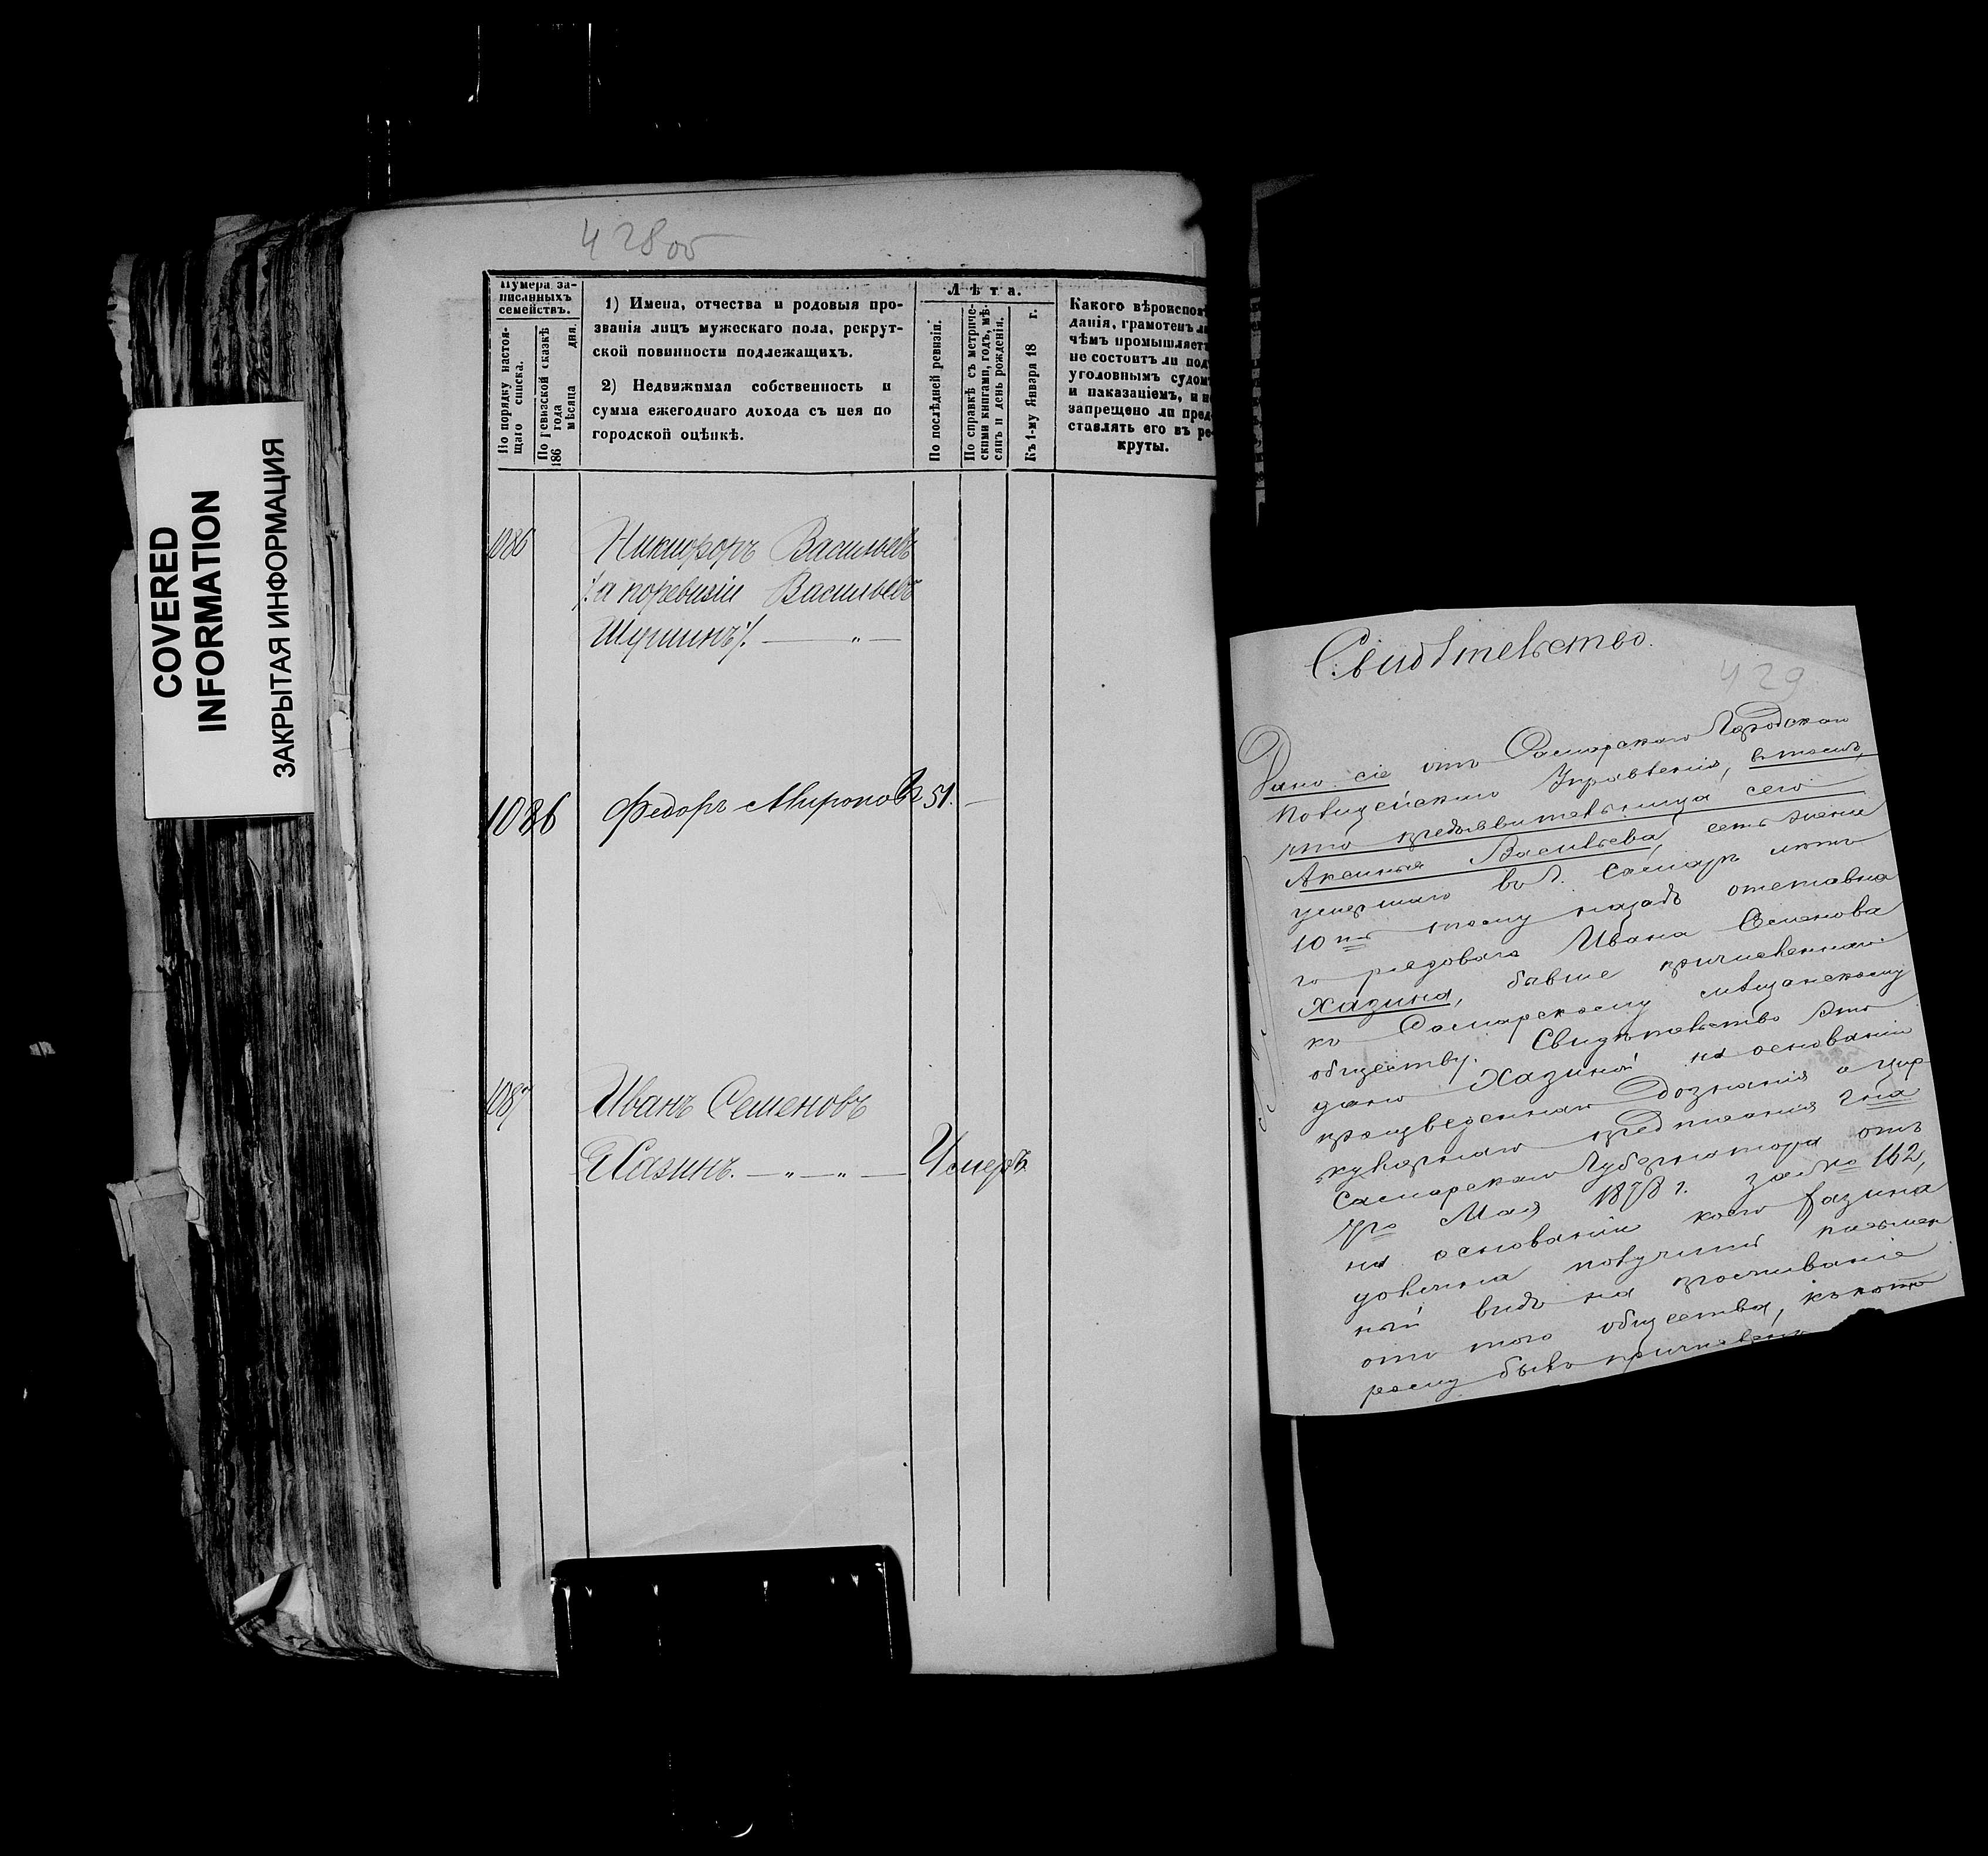 COVERED
INFORMATION
ЗАКРЫТАЯ ИНФОРМАЦИЯ
428об
Нумера за-
писанныхъ
семействъ.
По порядку настоя-
щаго списка.
По ревизской сказкѣ
186 года
мѣсяца дня.
1) Имена, отчества и родовыя про-
званія лицъ мужескаго пола, рекрут-
ской повинности подлежащихъ.
2) Недвижимая собственность и
сумма ежегоднаго дохода съ нея по
городской оцѣнкѣ.
Лѣта.
По послѣдней ревизіи.
По справкѣ съ метриче-
скими книгами, годъ, мѣ-
сяцъ и день рожденія.
Къ 1-му Января 18 г.
Какого вѣроиспов
данія, грамотенъ л
чѣмъ промышляетъ
не состоитъ ли под
уголовнымъ судом
и наказаніемъ, и н
запрещено ли пред-
ставлять его въ ре-
круты.
1086 Никифоръ Васильевъ
/:а поревизіи Васильевъ
Шушинъ/. — „ —
1086 Федоръ Мироновъ 51. —
1087 Иванъ Семеновъ
Хазинъ. — „ — „ — Умеръ
Свидѣтельство.
429
Дано сіе отъ Самарскаго Городскаго
Полицейскаго Управленія, въ томъ,
что предъявительница сего
Аксинья Васильева, есть жена
умершаго въ г. Самарѣ лѣтъ
10ть тому назадъ отставна
го рядоваго Ивана Семенова
Хазина, бывше причисленнаго
къ Самарскому мѣщанскому
обществу. Свидѣтельство это
дано Хазиной на основаніи
произведеннаго дознанія о цир
кулярнаго предписанія Гна
Самарскаго Губернатора отъ
Мая 1878 г. за № 162,
на основаніи коего Хазина
должна получить письмен
ный видъ на проживаніе
отъ того общества, къ кото
рому былъ причисленъ